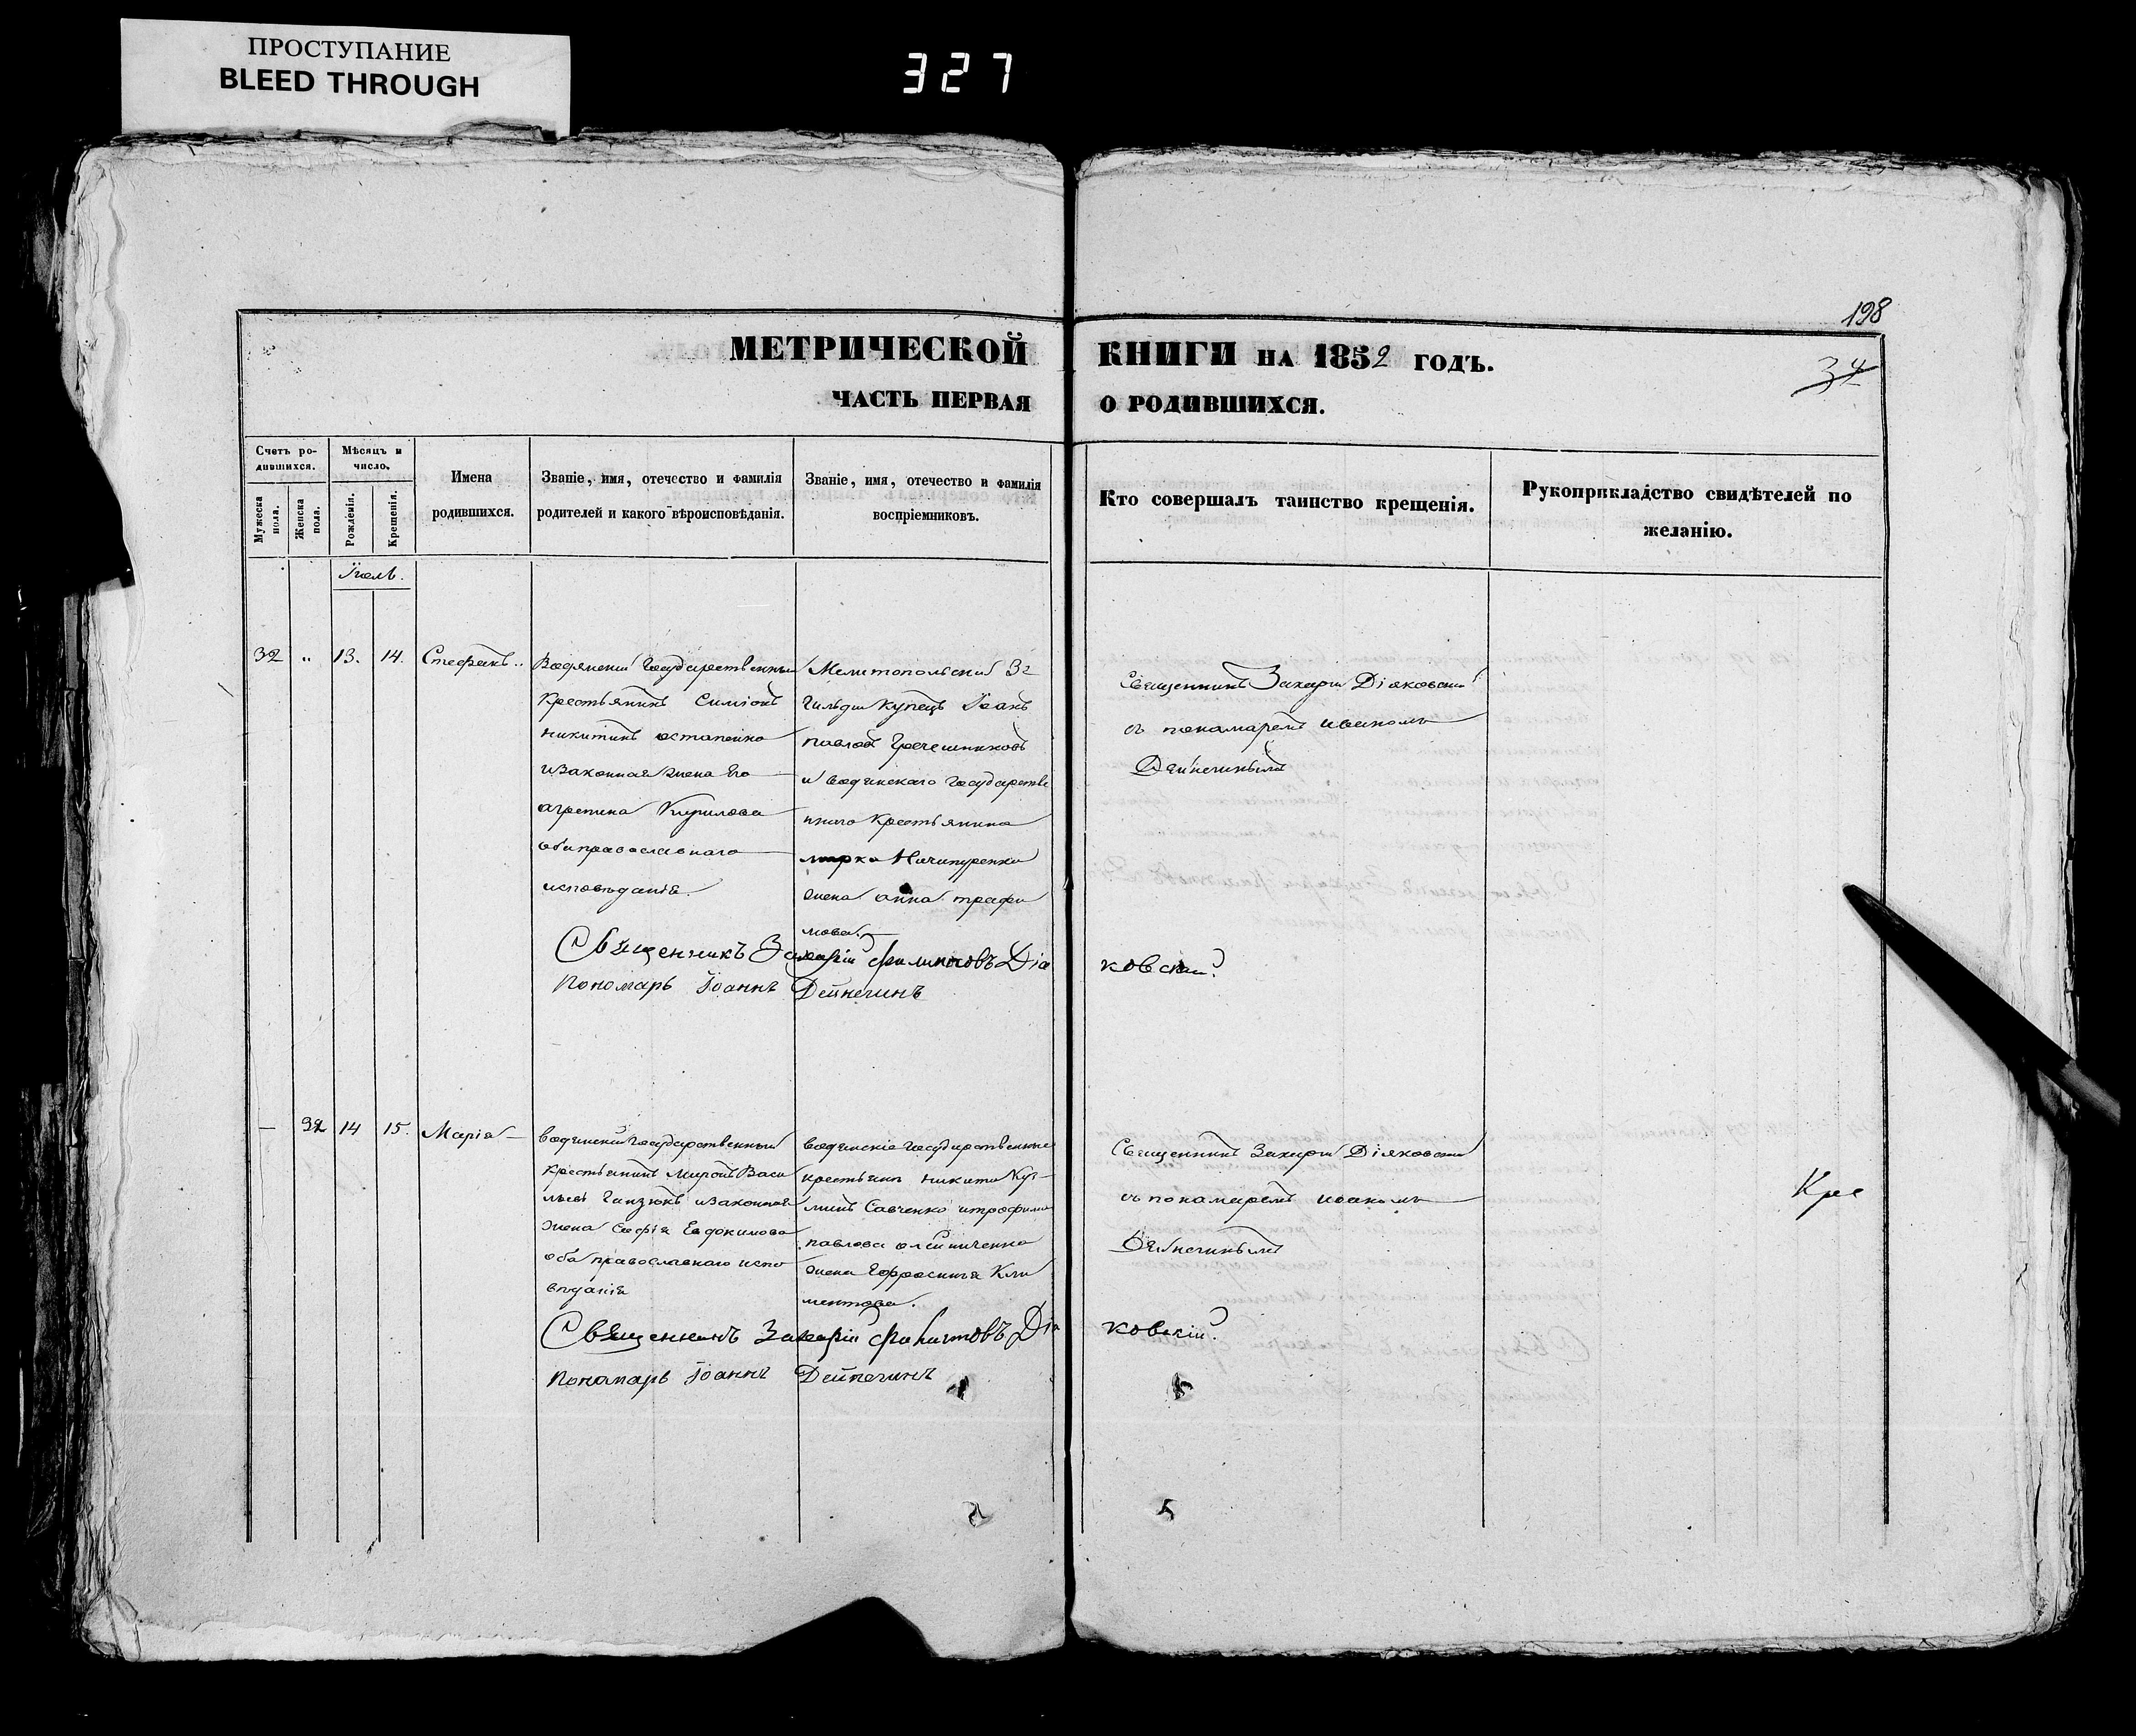 ПРОСТУПАНИЕ
BLEED THROUGH
327
198
МЕТРИЧЕСКОЙ КНИГИ НА 1852 ГОДЪ.
34
ЧАСТЬ ПЕРВАЯ О РОДИВШИХСЯ.
Счетъ ро-
дившихся.
Мужеска пола.
Женска пола.
Мѣсяцъ и
число.
Рожденія.
Крещенія.
Имена
родившихся.
Званіе, имя, отечество и фамилія
родителей и какого вѣроисповѣданія.
Званіе, имя, отечество и фамилія
воспріемниковъ.
Кто совершалъ таинство крещенія.
Рукоприкладство свидѣтелей по
желанію.
Іюль.
32 " 13. 14. Стефанъ..
Водянскій Государственный
Крестьянинъ Симіонъ
Никитинъ остапенко
изаконная жена Его
агрепина Кирилова
оба православнаго
исповѣданія.
Мелитопольскій 3й
Гильдіи Купецъ Іоанъ
павловъ Гречешниковъ
и водянскаго Государстве
ннаго Крестьянина
марка Ничипуренка
жена анна трафи
мова.
Священникъ Захарій Діяковскій
съ понамаремъ иваномъ
Дейнегинымъ
Священникъ Захарій Филиповъ Діа ковскій.
Пономарь Іоаннъ Дейнегинъ
— 32 14 15. Марія —
водянскій Государственный
крестьянинъ Миронъ Васи
льевъ Ганзюкъ изаконная
жена Софія Евдокимова
оба православнаго испо
вѣданія
водянскіе Государственные
крестьяне никита Куз-
минъ Савченко итрофима
павлова олейниченка
жена Ефросинія Кли
ментова.
Священникъ Захарій Діяковскій
съ понамаремъ иваномъ
Дейнегинымъ
Кре
Священникъ Захарій Филиповъ Діа ковскій.
Понамарь Іоаннъ Дейнегинъ